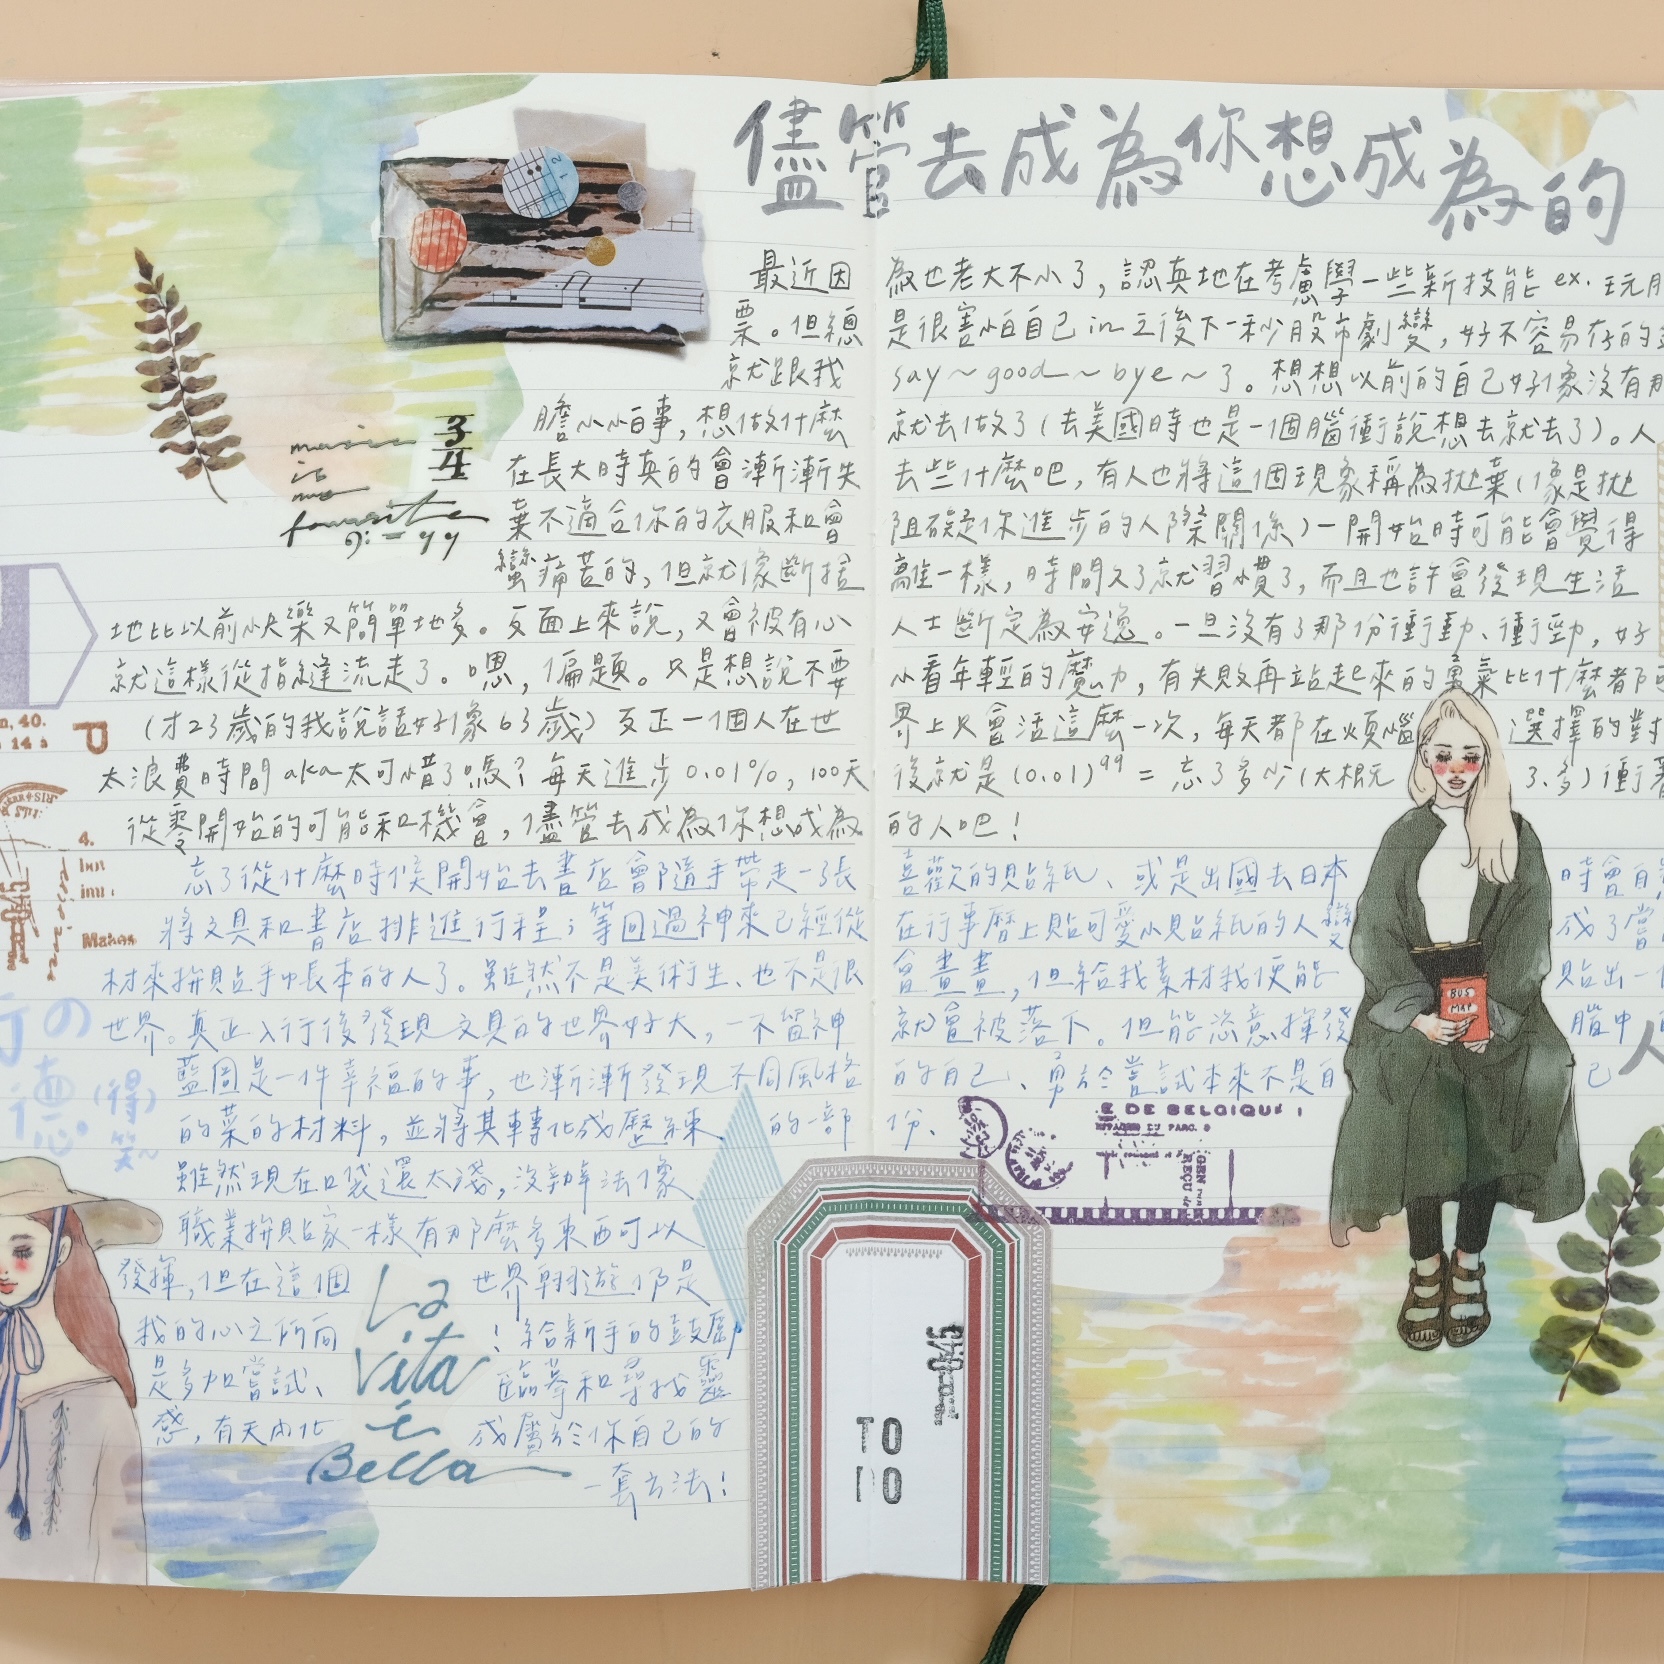 儘管去成為你想成為的
最近因為也老大不小了，認真地在考慮學一些新技能 ex. 玩股
票。但總是很害怕自己 in 之後下一秒股市劇變，好不容易存的
就跟我 say~good~bye~了。想想以前的自己好像沒有那
膽小小百事，想做什麼就去做了(去美國時也是一個腦衝說想去就去了)。人
在長大時真的會漸漸失去些什麼吧，有人也將這個現象稱為拋棄(像是拋
棄不適合你的衣服和會阻礙你進步的人際關係)一開始時可能會覺得
蠻痛苦的，但就像斷捨離一樣，時間久了就習慣了，而且也許會發現生活
地比以前快樂又簡單地多。反面上來說，又會被有心人士斷定為安逸。一旦沒有了那份衝動、衝勁，好
就這樣從指縫流走了。嗯，偏題。只是想說不要小看年輕的魔力，有失敗再站起來的勇氣比什麼都可
(才23歲的我說話好像63歲) 反正一個人在世界上只會活這麼一次，每天都在煩惱 選擇的對
太浪費時間 aka 太可惜了嗎？每天進步 0.01%，100天後就是 (0.01)⁹⁹ = 忘了多少(大概元 3.多) 衝著
從零開始的可能和機會，儘管去成為你想成為的人吧！
忘了從什麼時候開始去書店會隨手帶走一張喜歡的貼紙、或是出國去日本 時會自
將文具和書店排進行程；等回過神來已經從在行事曆上貼可愛小貼紙的人變 成了當
材來拼貼手帳本的人了。雖然不是美術生、也不是很會畫畫，但給我素材我便能 貼出一
世界。真正入行後發現文具的世界好大，一不留神就會被落下。但能恣意揮發 腦中
藍圖是一件幸福的事，也漸漸發現不同風格的自己、勇於嘗試本來不是自 己
的菜的材料，並將其轉化成歷練的一部份。
雖然現在口袋還太淺，沒辦法像
職業拼貼家一樣有那麼多東西可以
發揮，但在這個世界翱遊仍是
我的心之所向！給新手的鼓勵
是多加嘗試、臨摹和尋找靈
感，有天內化成屬於你自己的
一套方法！
music
is
my
favorite
3
4
n, 40.
14
P
4.
行の
德。
(得)
笑~
人
La
Vita
è
Bella
E DE BELGIQUE
TO
DO
BUS
MAP